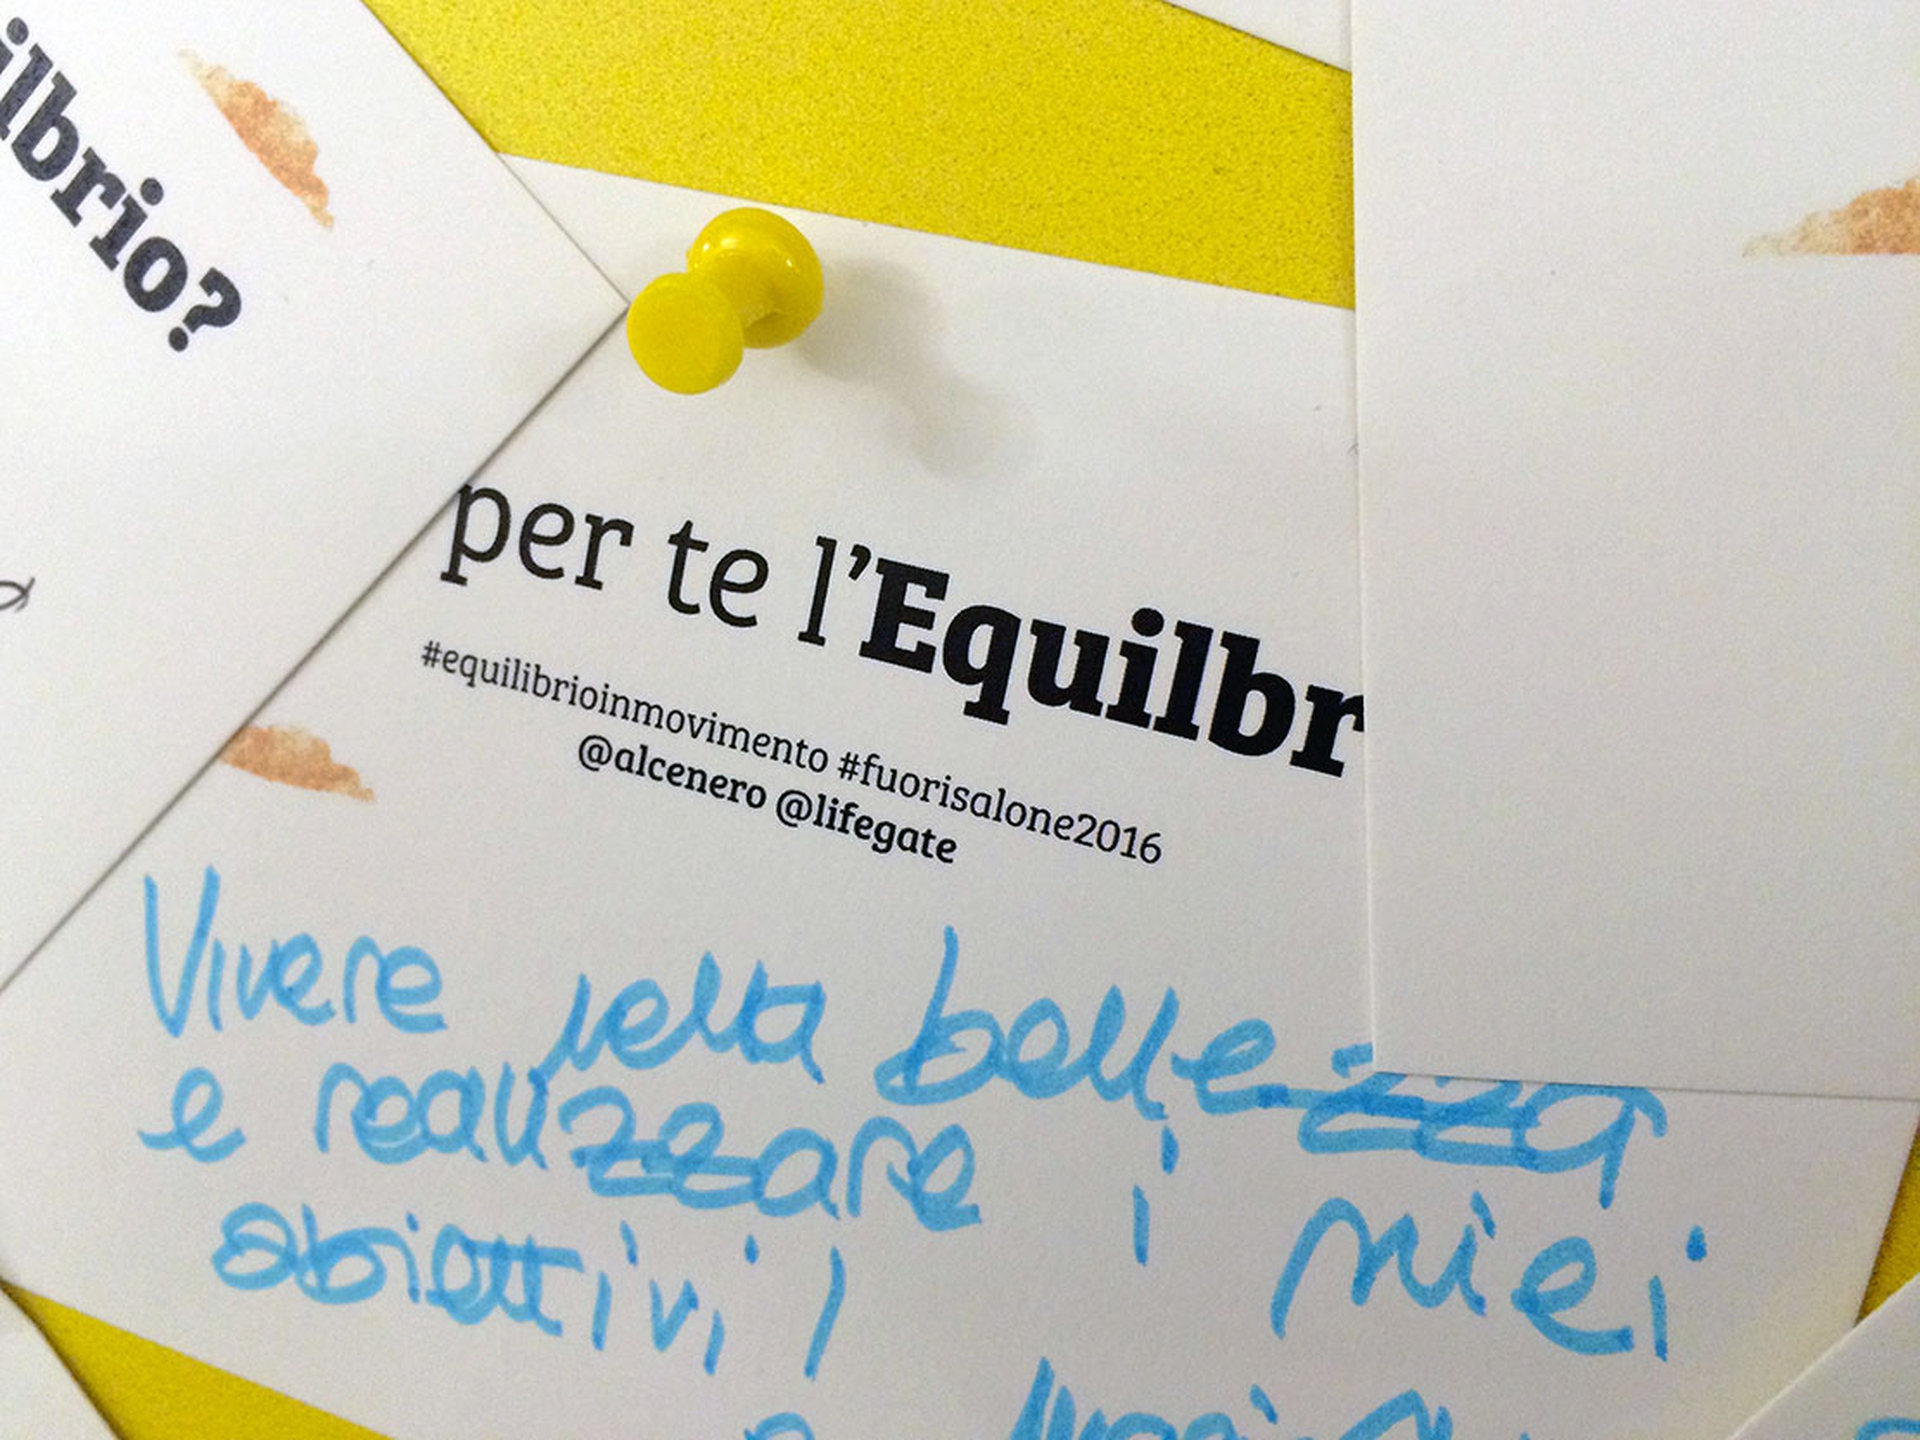 ilbrio?
per te l'Equilbr
#equilibrioinmovimento #fuorisalone2016
@alcenero @lifegate
Vivere nella bellezza
e realizzare i miei
obiettivi!